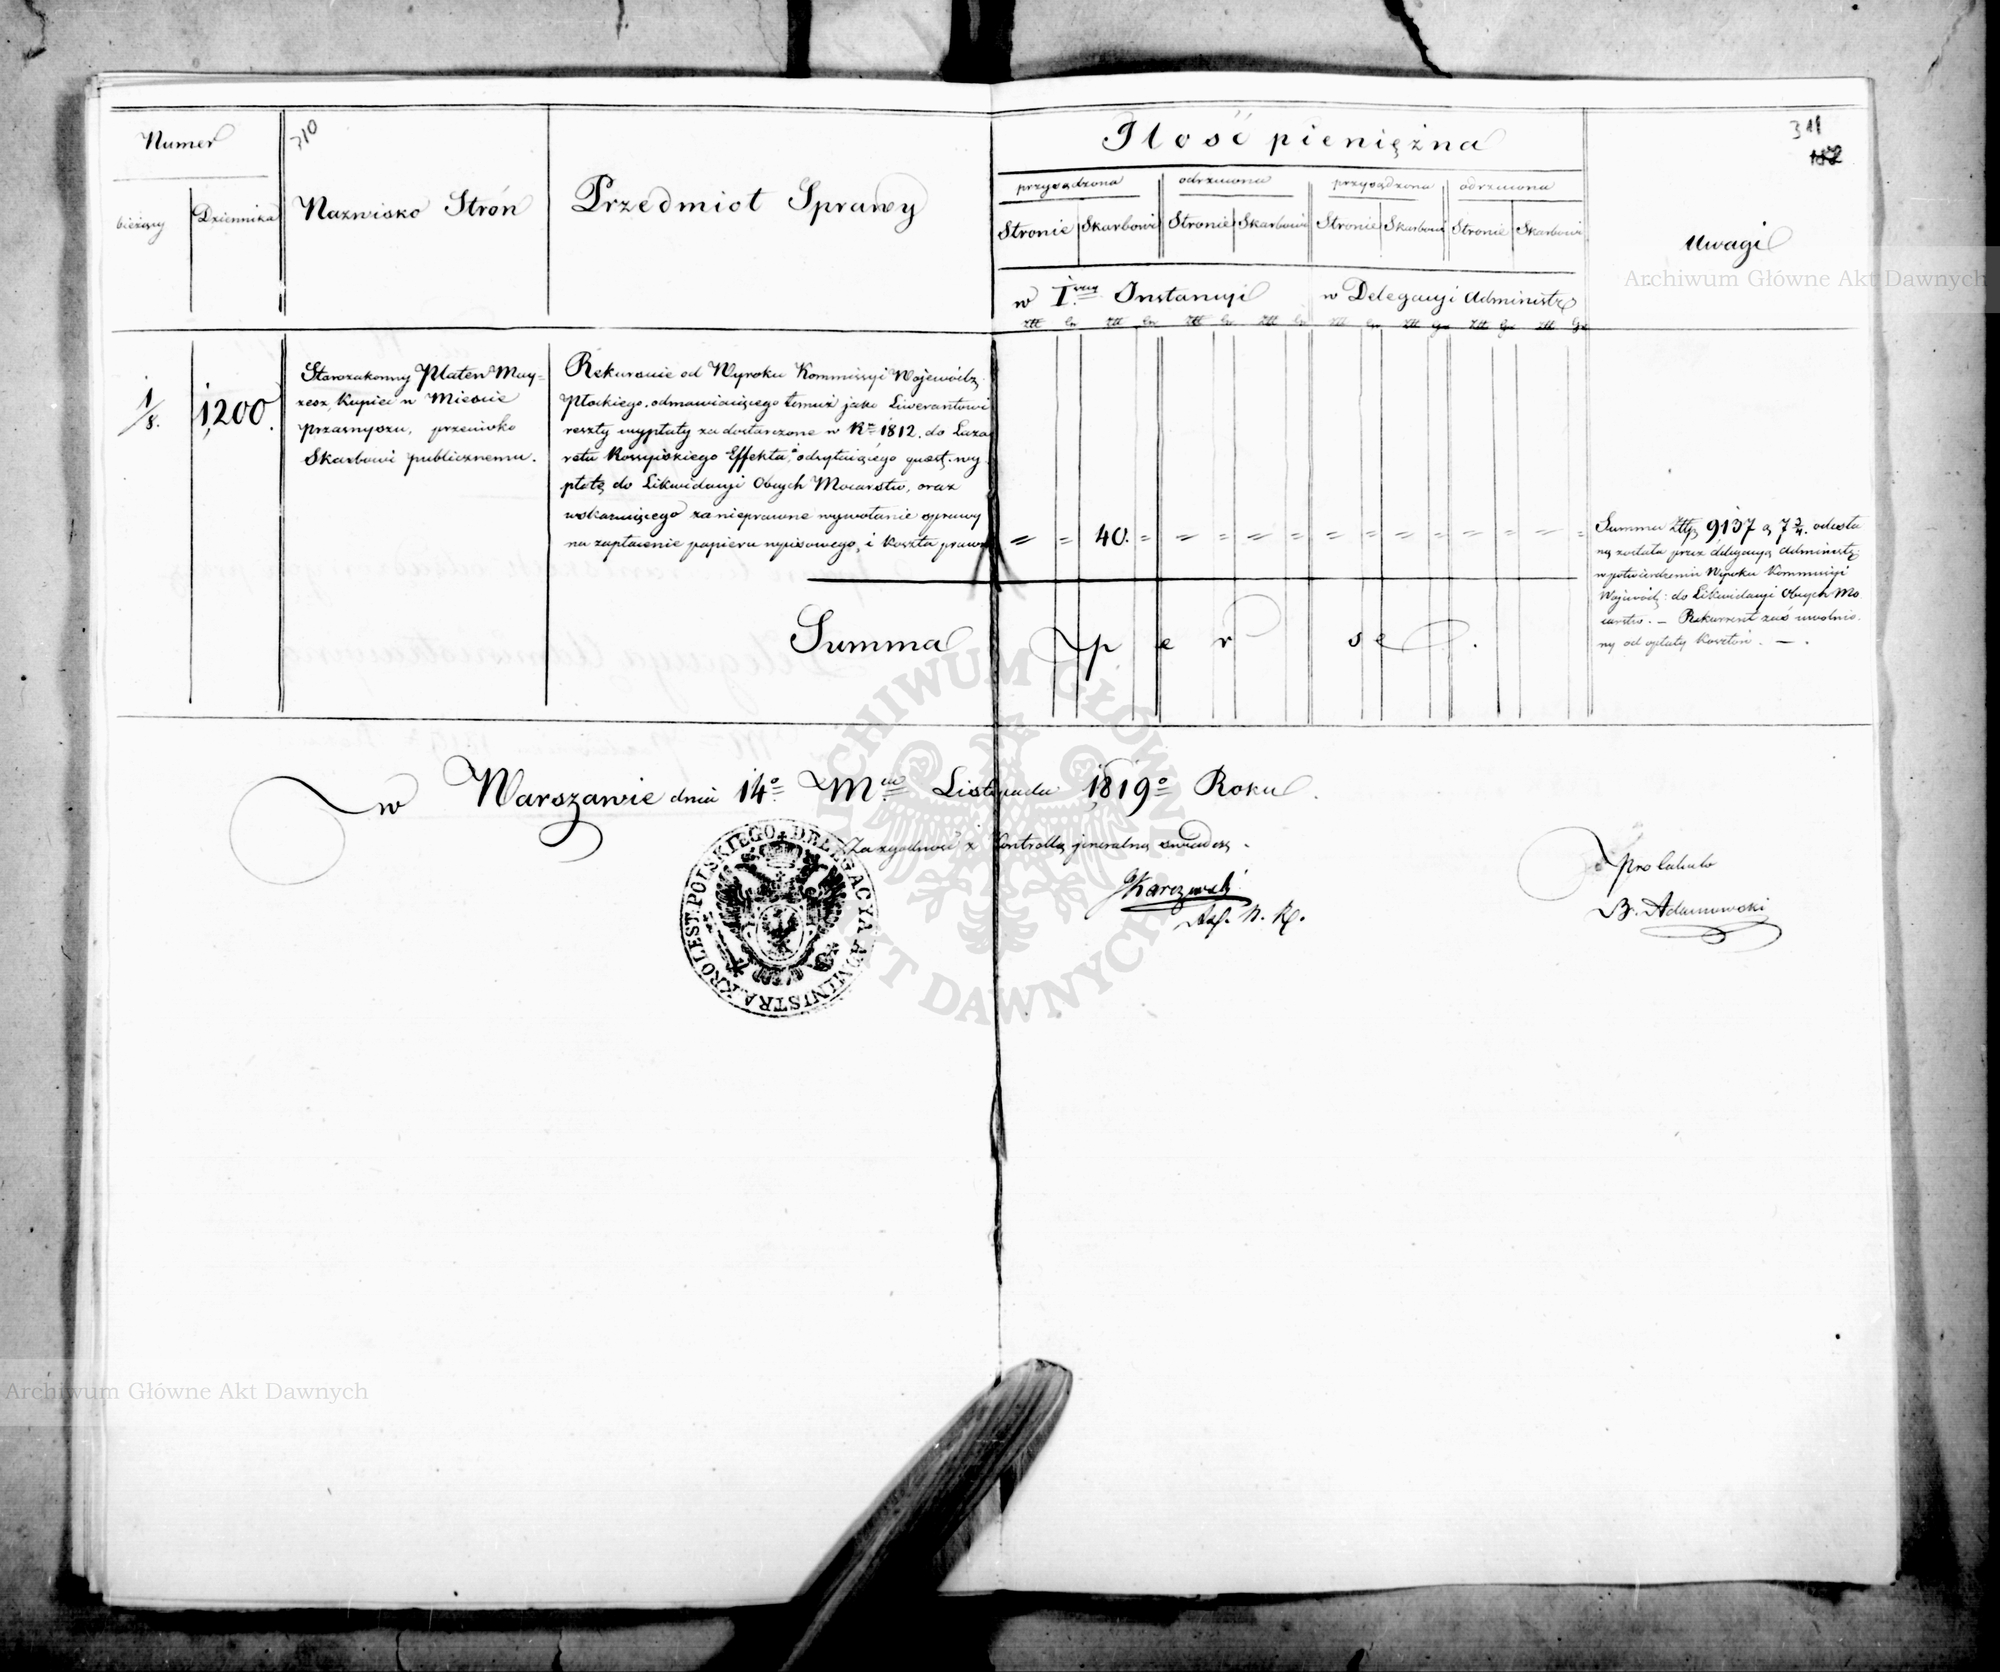 310
311
Numer
bieżący
Dziennika
Nazwisko Strón
Przedmiot Sprawy
Ilość pieniężna
przysądzona odrzucona przysądzona odrzucona
Stronie Skarbowi Stronie Skarbowi Stronie Skarbowi Stronie Skarbowi
w I. Instancyi w Delegacyi Administr.
Uwagi
1/8.
1,200.
Starozakonny Platen May=
zesz, Kupiec w Miescie
Przasnyszu, przeciwko
Skarbowi publicznemu.
Rekursuie od Wyroku Kommissyi Wojewódz.
Płockiego, odmawiaiącego temuż jako Liwerantowi
reszty wypłaty za dostarczone w R. 1812. do Laza
retu Rossyiskiego Effekta, odsyłaiącego quest. wy
płatę do Likwidacyi Obcych Mocarstw, oraz
wskazuiącego za nieprawne wywołanie sprawy
na zapłacenie papieru wpisowego, i koszta prawne
= = 40. = = = = = = = = = = = = =
Summa Złtp 9137 g 7 3/4. odesła
ną została przez delegacyą Administr:
w potwierdzeniu Wyroku Kommissyi
Wojewódz: do Likwidacyi Obcych Mo
carstw. — Rekurrent zaś uwolnio
ny od opłaty kosztów. —.
Summa per se.
w Warszawie dnia 14º Mca Listopada 1819º Roku.
Za zgodność z Kontrollą jeneralną swiadczy
Karczewski
Pro Calculo
B. Adamowski
KROLEST. POLSKIEGO DELEGACYA ADMINISTRA.
ARCHIWUM GŁÓWNE AKT DAWNYCH
Archiwum Główne Akt Dawnych
Archiwum Główne Akt Dawnych